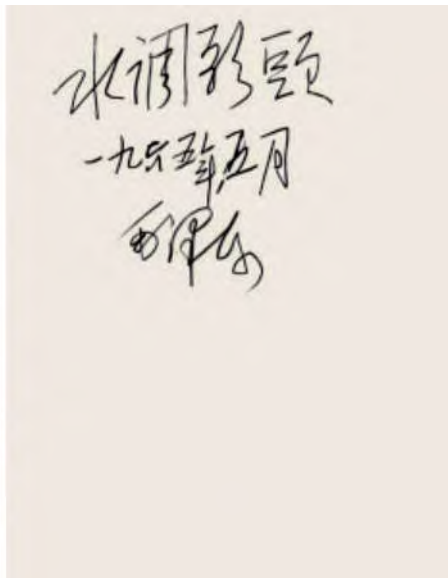 水调歌頭
一九六五年五月
毛泽东